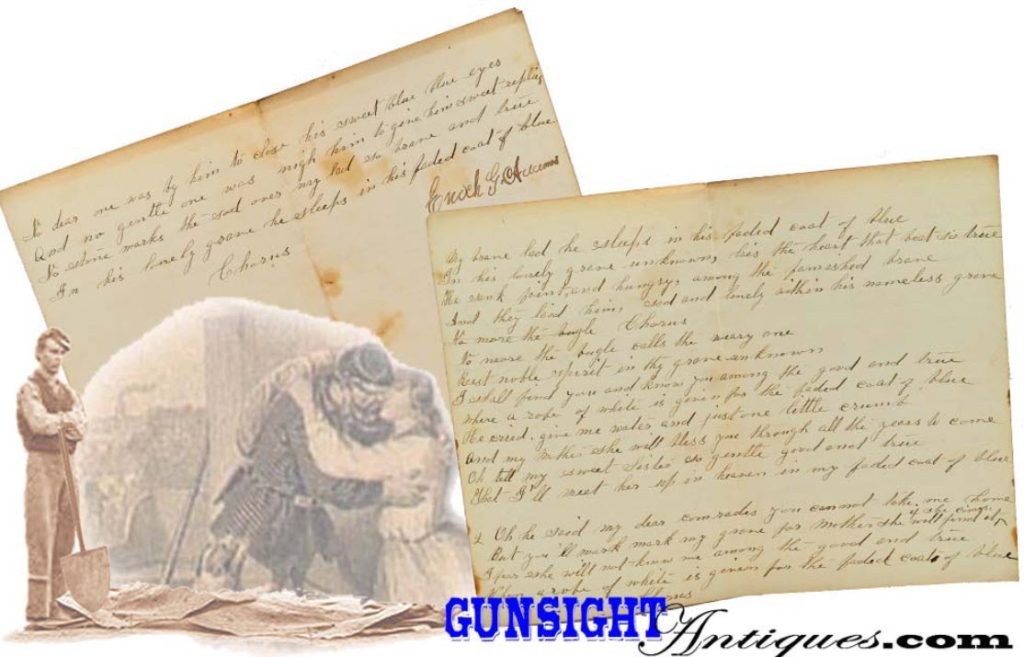 No dear one was by him to close his sweet blue blue eyes
And no gentle one was nigh him to give him sweet replies
No stone marks the sod over my lad so brave and true
In his lonely grave he sleeps in his faded coat of blue
Chorus
Enoch G
My brave lad he sleeps in his faded coat of blue
In his lonely grave unknown, lies the heart that beat so true
He sank faint, and hungry, among the famished brave
And they laid him, sad and lonely within his nameless grave
No more the bugle Chorus
No more the bugle calls the weary one
Rest noble spirit in thy grave unknown
I shall find you and know you among the good and true
Where a robe of white is given for the faded coat of blue
He cried, give me water and just one little crumb
And my mother she will bless you through all the years to come
Oh tell my sweet sister so gentle good and true
That I'll meet her up in heaven in my faded coat of blue
2 Oh he said my dear comrades you cannot take me home
But you'll mark mark my grave for Mother she will find it if she comes
I fear she will not know me among the good and true
When a robe of white is given for the faded coat of blue
Chorus
GUNSIGHT Antiques.com